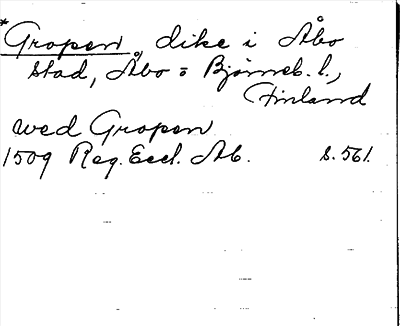 *Gropen, dike i Åbo
stad, Åbo = Björneb. l.,
Finland
wed Gropen
1509 Reg. Eccl. Ab. s. 561.